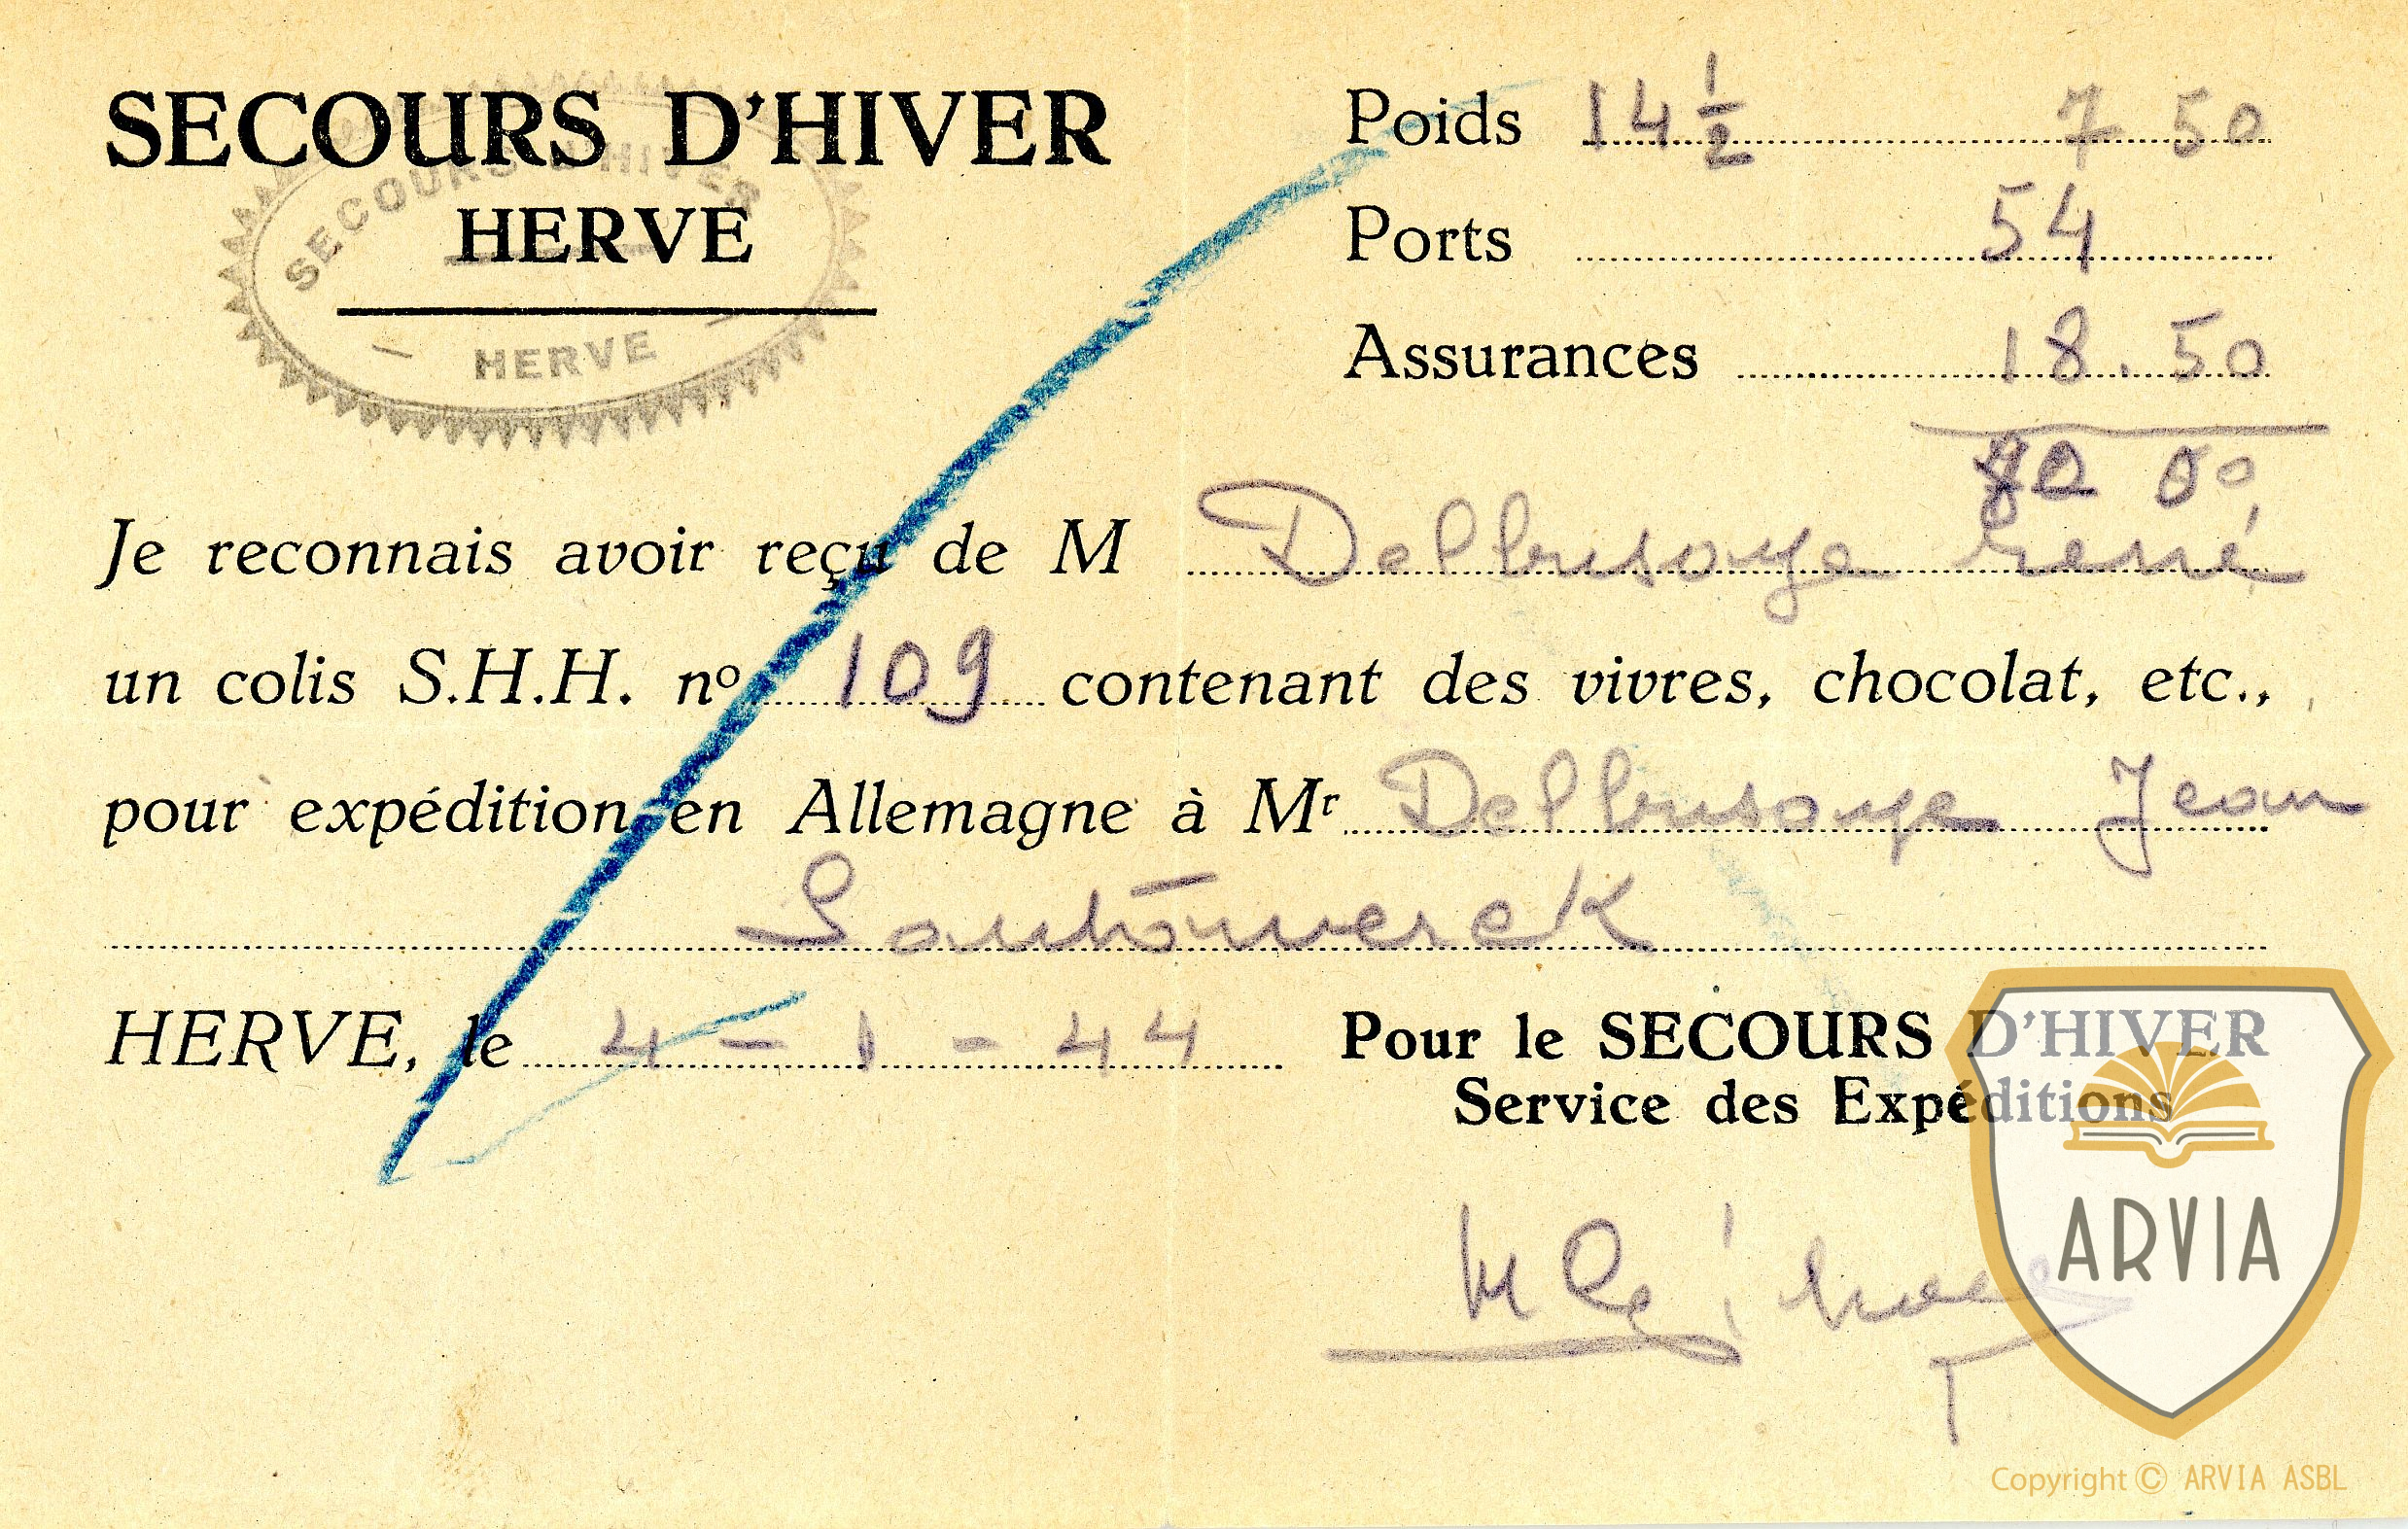 SECOURS D'HIVER
HERVE
SECOURS D'HIVER
HERVE
Poids 14 1/2 7 50
Ports 54
Assurances 18.50
80 00
Je reconnais avoir reçu de M Delbrusoye rené
un colis S.H.H. nº 109 contenant des vivres, chocolat, etc.,
pour expédition en Allemagne à Mr Delbrusoye Jean
HERVE, le 4 - 1 - 44
Pour le SECOURS D'HIVER
Service des Expéditions
ARVIA
Copyright © ARVIA ASBL